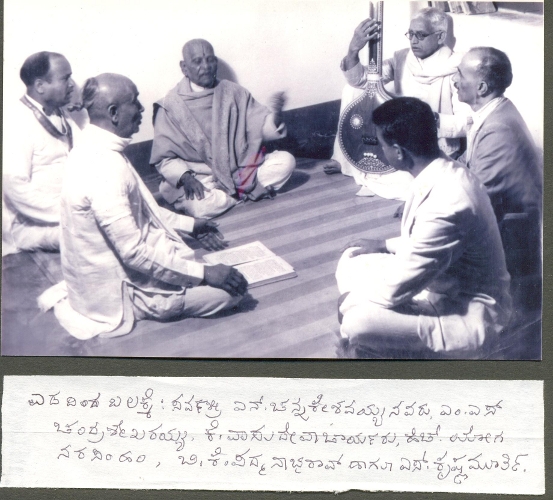 ಎಡದಿಂದ ಬಲಕ್ಕೆ : ಸರ್ವಶ್ರೀ ಎನ್. ಚನ್ನಕೇಶವಯ್ಯನವರು, ಎಂ.ಎಸ್
ಚಂದ್ರಶೇಖರಯ್ಯ, ಕೆ. ವಾಸುದೇವಾಚಾರ್ಯರು, ಹೆಚ್. ಯೋಗ
ನರಸಿಂಹಂ, ಬಿ.ಕೆ. ಪದ್ಮನಾಭರಾವ್ ಹಾಗೂ ಎಸ್. ಕೃಷ್ಣಮೂರ್ತಿ.